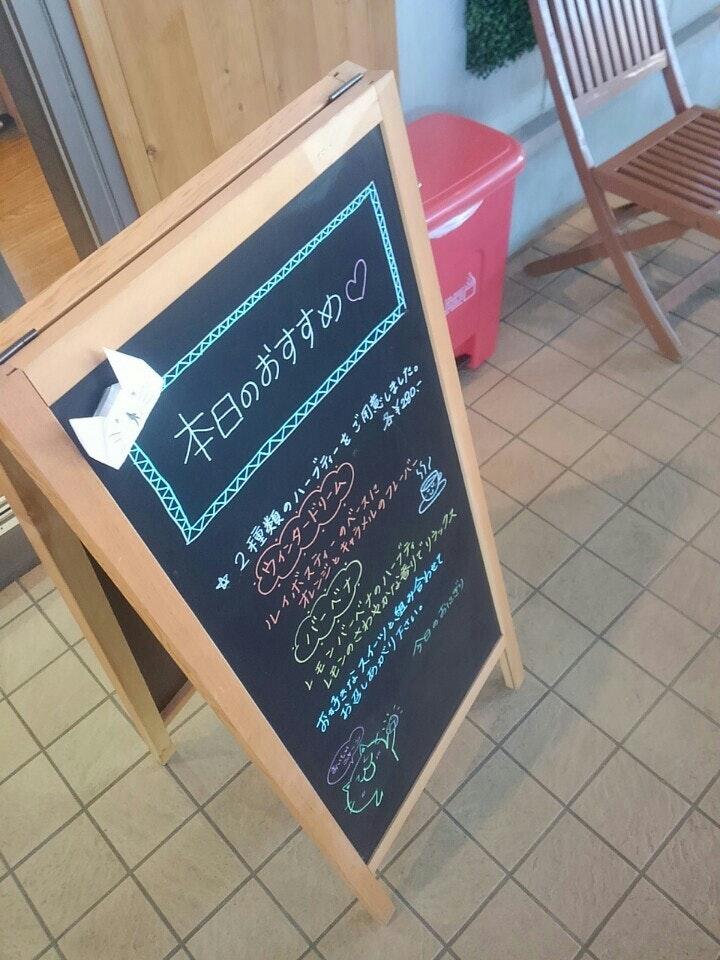 本日のおすすめ♡
☆2種類のハーブティーをご用意しました。
各¥290-
ウィンタードリーム
ルイボスティーのベースに
オレンジとキャラメルのフレーバー
バーベナ
レモンバーベナのハーブティ
レモンのさわやかな香りでリラックス
お好きなスイーツと組み合わせて
お召しあがり下さい。
今日のおにぎり